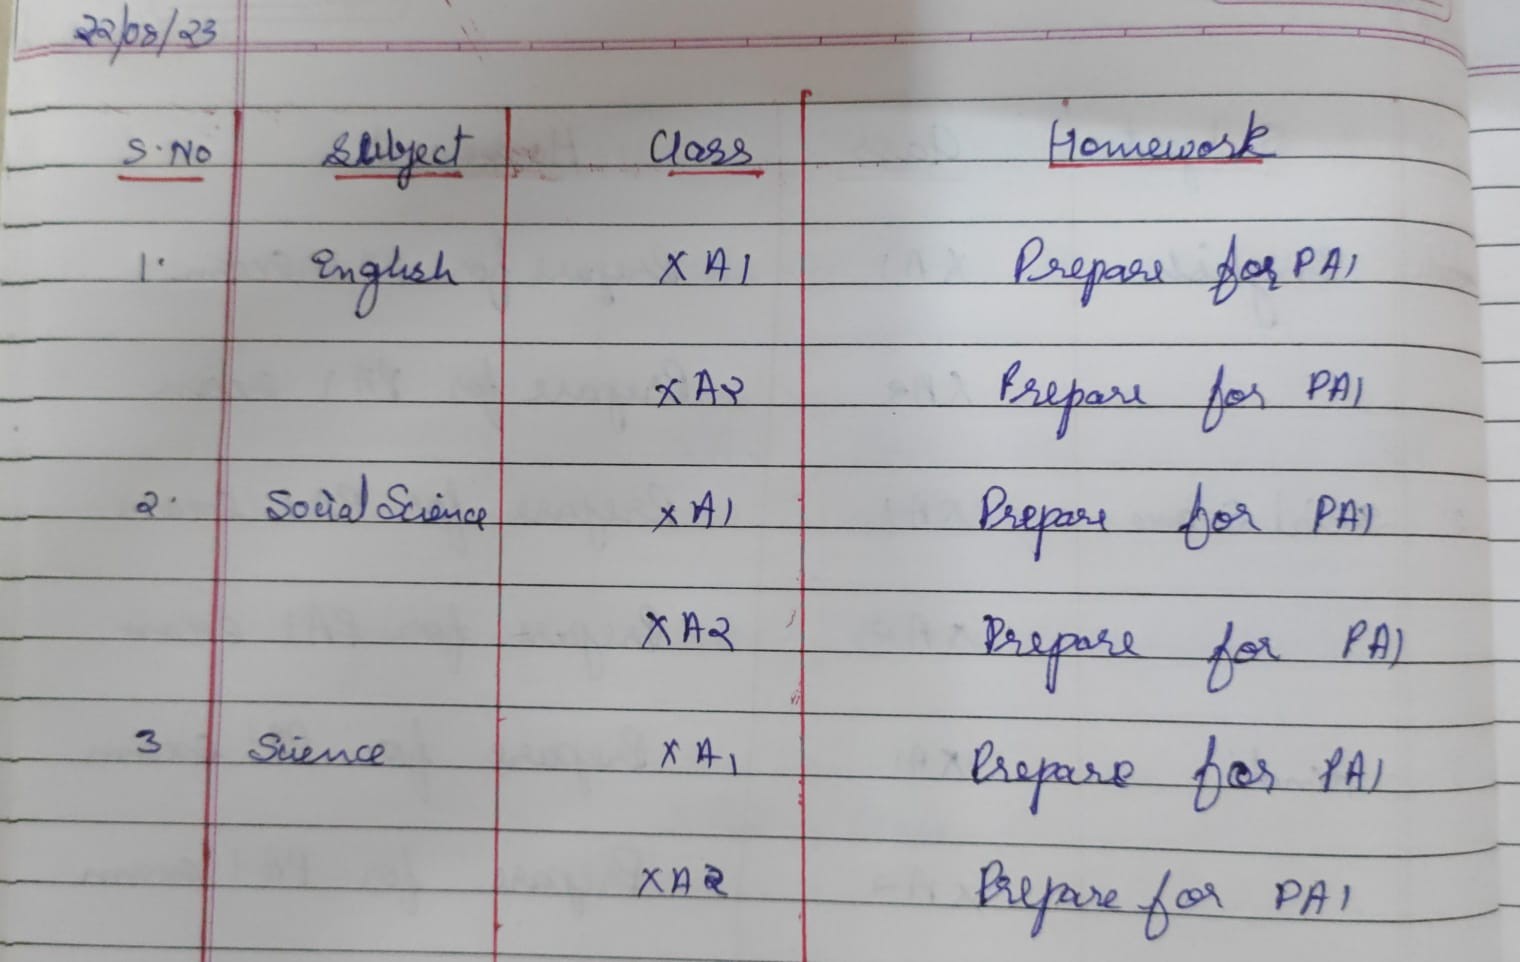 22/08/23
S.No Subject Class Homework
1. English X A1 Prepare for PA1
X A2 Prepare for PA1
2. Social Science X A1 Prepare for PA1
X A2 Prepare for PA1
3 Science X A1 Prepare for PA1
X A2 Prepare for PA1